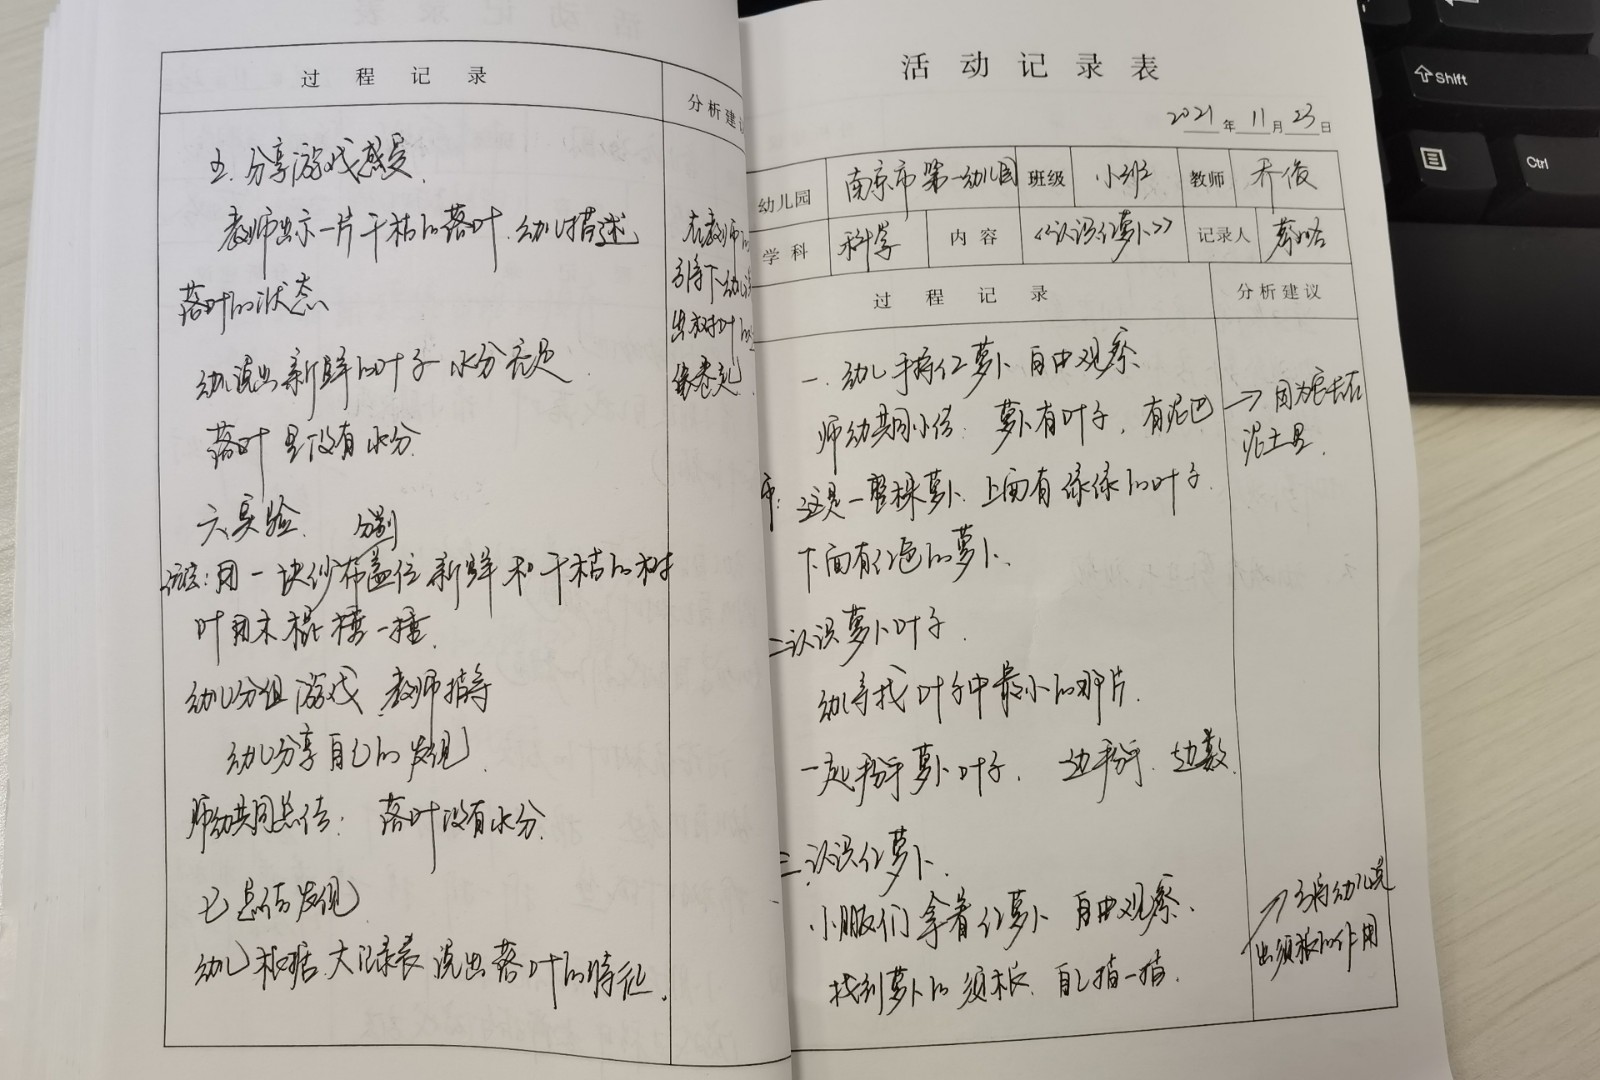 过程记录
分析建议
五.分享游戏感受.
教师出示一片干枯的落叶.幼儿描述
落叶的状态
幼儿说出新鲜的叶子 水分充足.
落叶里没有水分.
六.实验. 分别
玩法:用一块纱布盖住新鲜和干枯的树
叶用木棍捶一捶.
幼儿分组游戏 教师指导
幼儿分享自己的发现.
师幼共同总结: 落叶没有水分.
七.总结发现
幼儿根据大记录表 说出落叶的特征.
在教师的
引导下幼儿
出树叶
活动记录表
2021年11月23日
幼儿园 南京市第一幼儿园 班级 小班 教师 乔俊
学科 科学 内容 《认识红萝卜》 记录人 蔡皓
过程记录 分析建议
一.幼儿手持红萝卜 自由观察.
师幼共同小结: 萝卜有叶子,有泥巴 → 因为它长在
泥土里.
师:这是一整株萝卜.上面有绿绿的叶子.
下面有红色的萝卜.
二.认识萝卜叶子.
幼儿寻找叶子中最小的那片.
一起掰萝卜叶子. 边掰.边数.
三.认识红萝卜.
小朋友们拿着红萝卜 自由观察.
找到萝卜的须根.自己指一指.
→ 引导幼儿说
出须根的作用
Shift
Ctrl